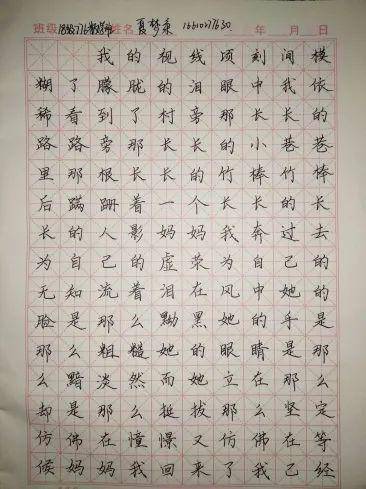 班级 姓名 夏梦秉 年 月 日
我的视线顷刻间模
糊了朦胧的泪眼中我依
稀看到了村旁那长长的
路路旁那长长的小巷巷
里那根长长的竹棒竹棒
后蹒跚着一个长长的长
长的人影妈妈我奔过去
为自己的虚荣为自己的
无知流着泪在风中她的
脸是那么黝黑她的手是
那么粗糙她的眼睛是那
么黯淡然而她立在那么
却是那么挺拔那么坚定
仿佛在憧憬又仿佛在等
候妈妈我回来了我已经